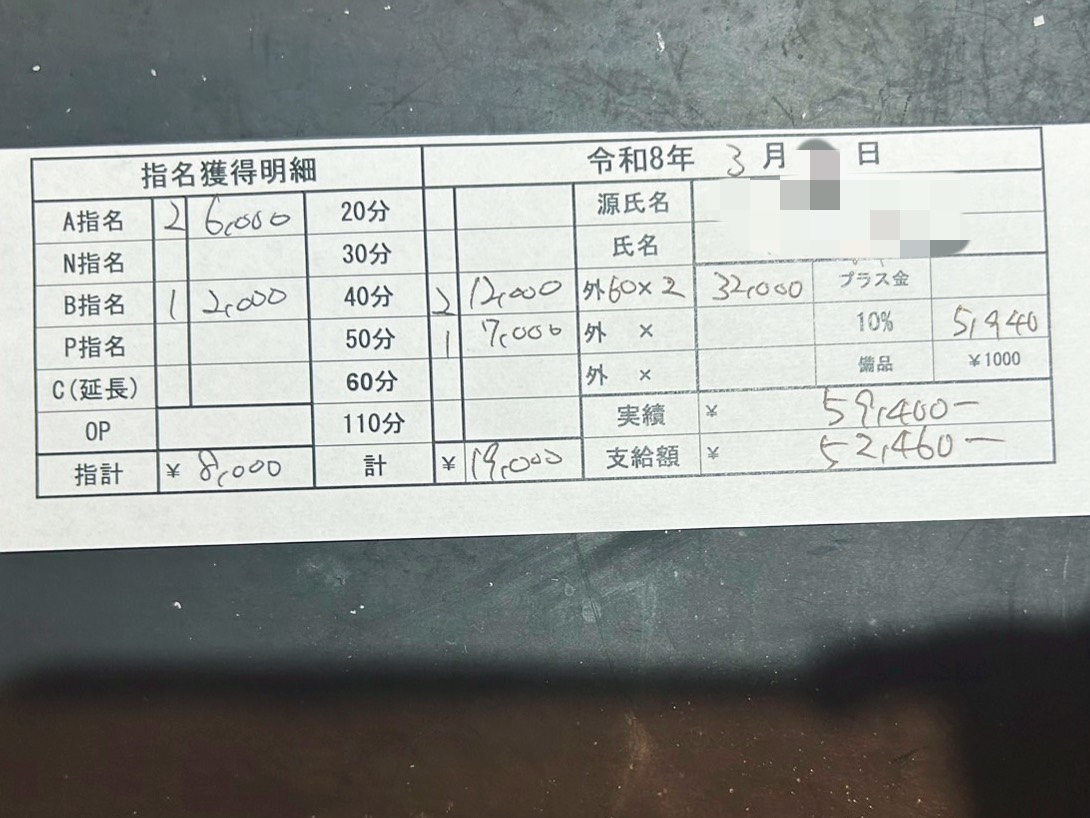 指名獲得明細 令和8年 3月 日
A指名 2 6,000 20分 源氏名
N指名 30分 氏名
B指名 1 2,000 40分 2 12,000 外60×2 32,000 プラス金
P指名 50分 1 7,000 外 × 10% 5,940
C(延長) 60分 外 × 備品 ¥1000
OP 110分 実績 ¥ 59,400-
指計 ¥ 8,000 計 ¥ 19,000 支給額 ¥ 52,460-